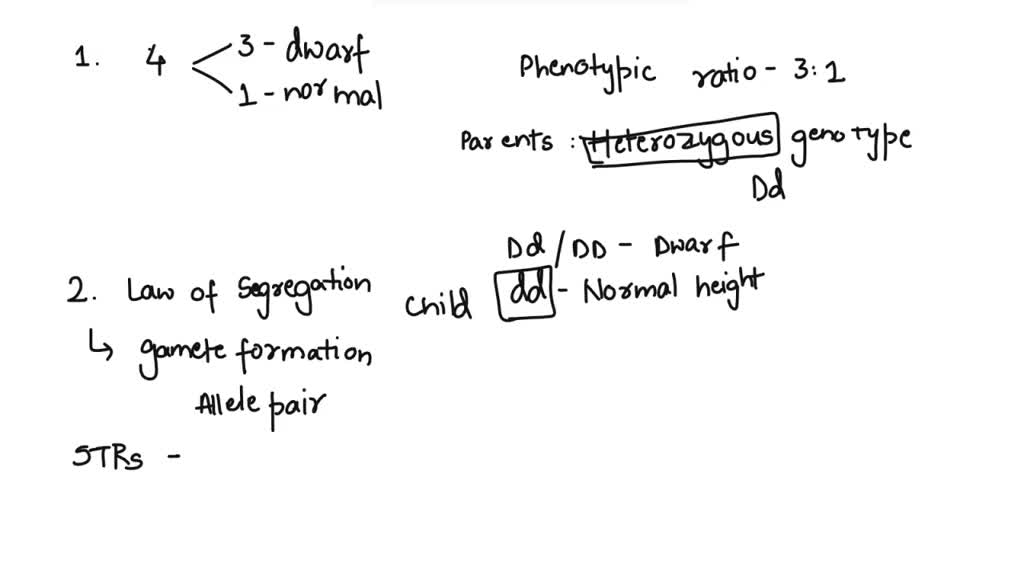 1. 4 3 - dwarf
1 - normal
Phenotypic ratio - 3:1
Parents : Heterozygous genotype
Dd
Dd / DD - Dwarf
Child dd - Normal height
2. Law of Segregation
↳ gamete formation
Allele pair
STRs -